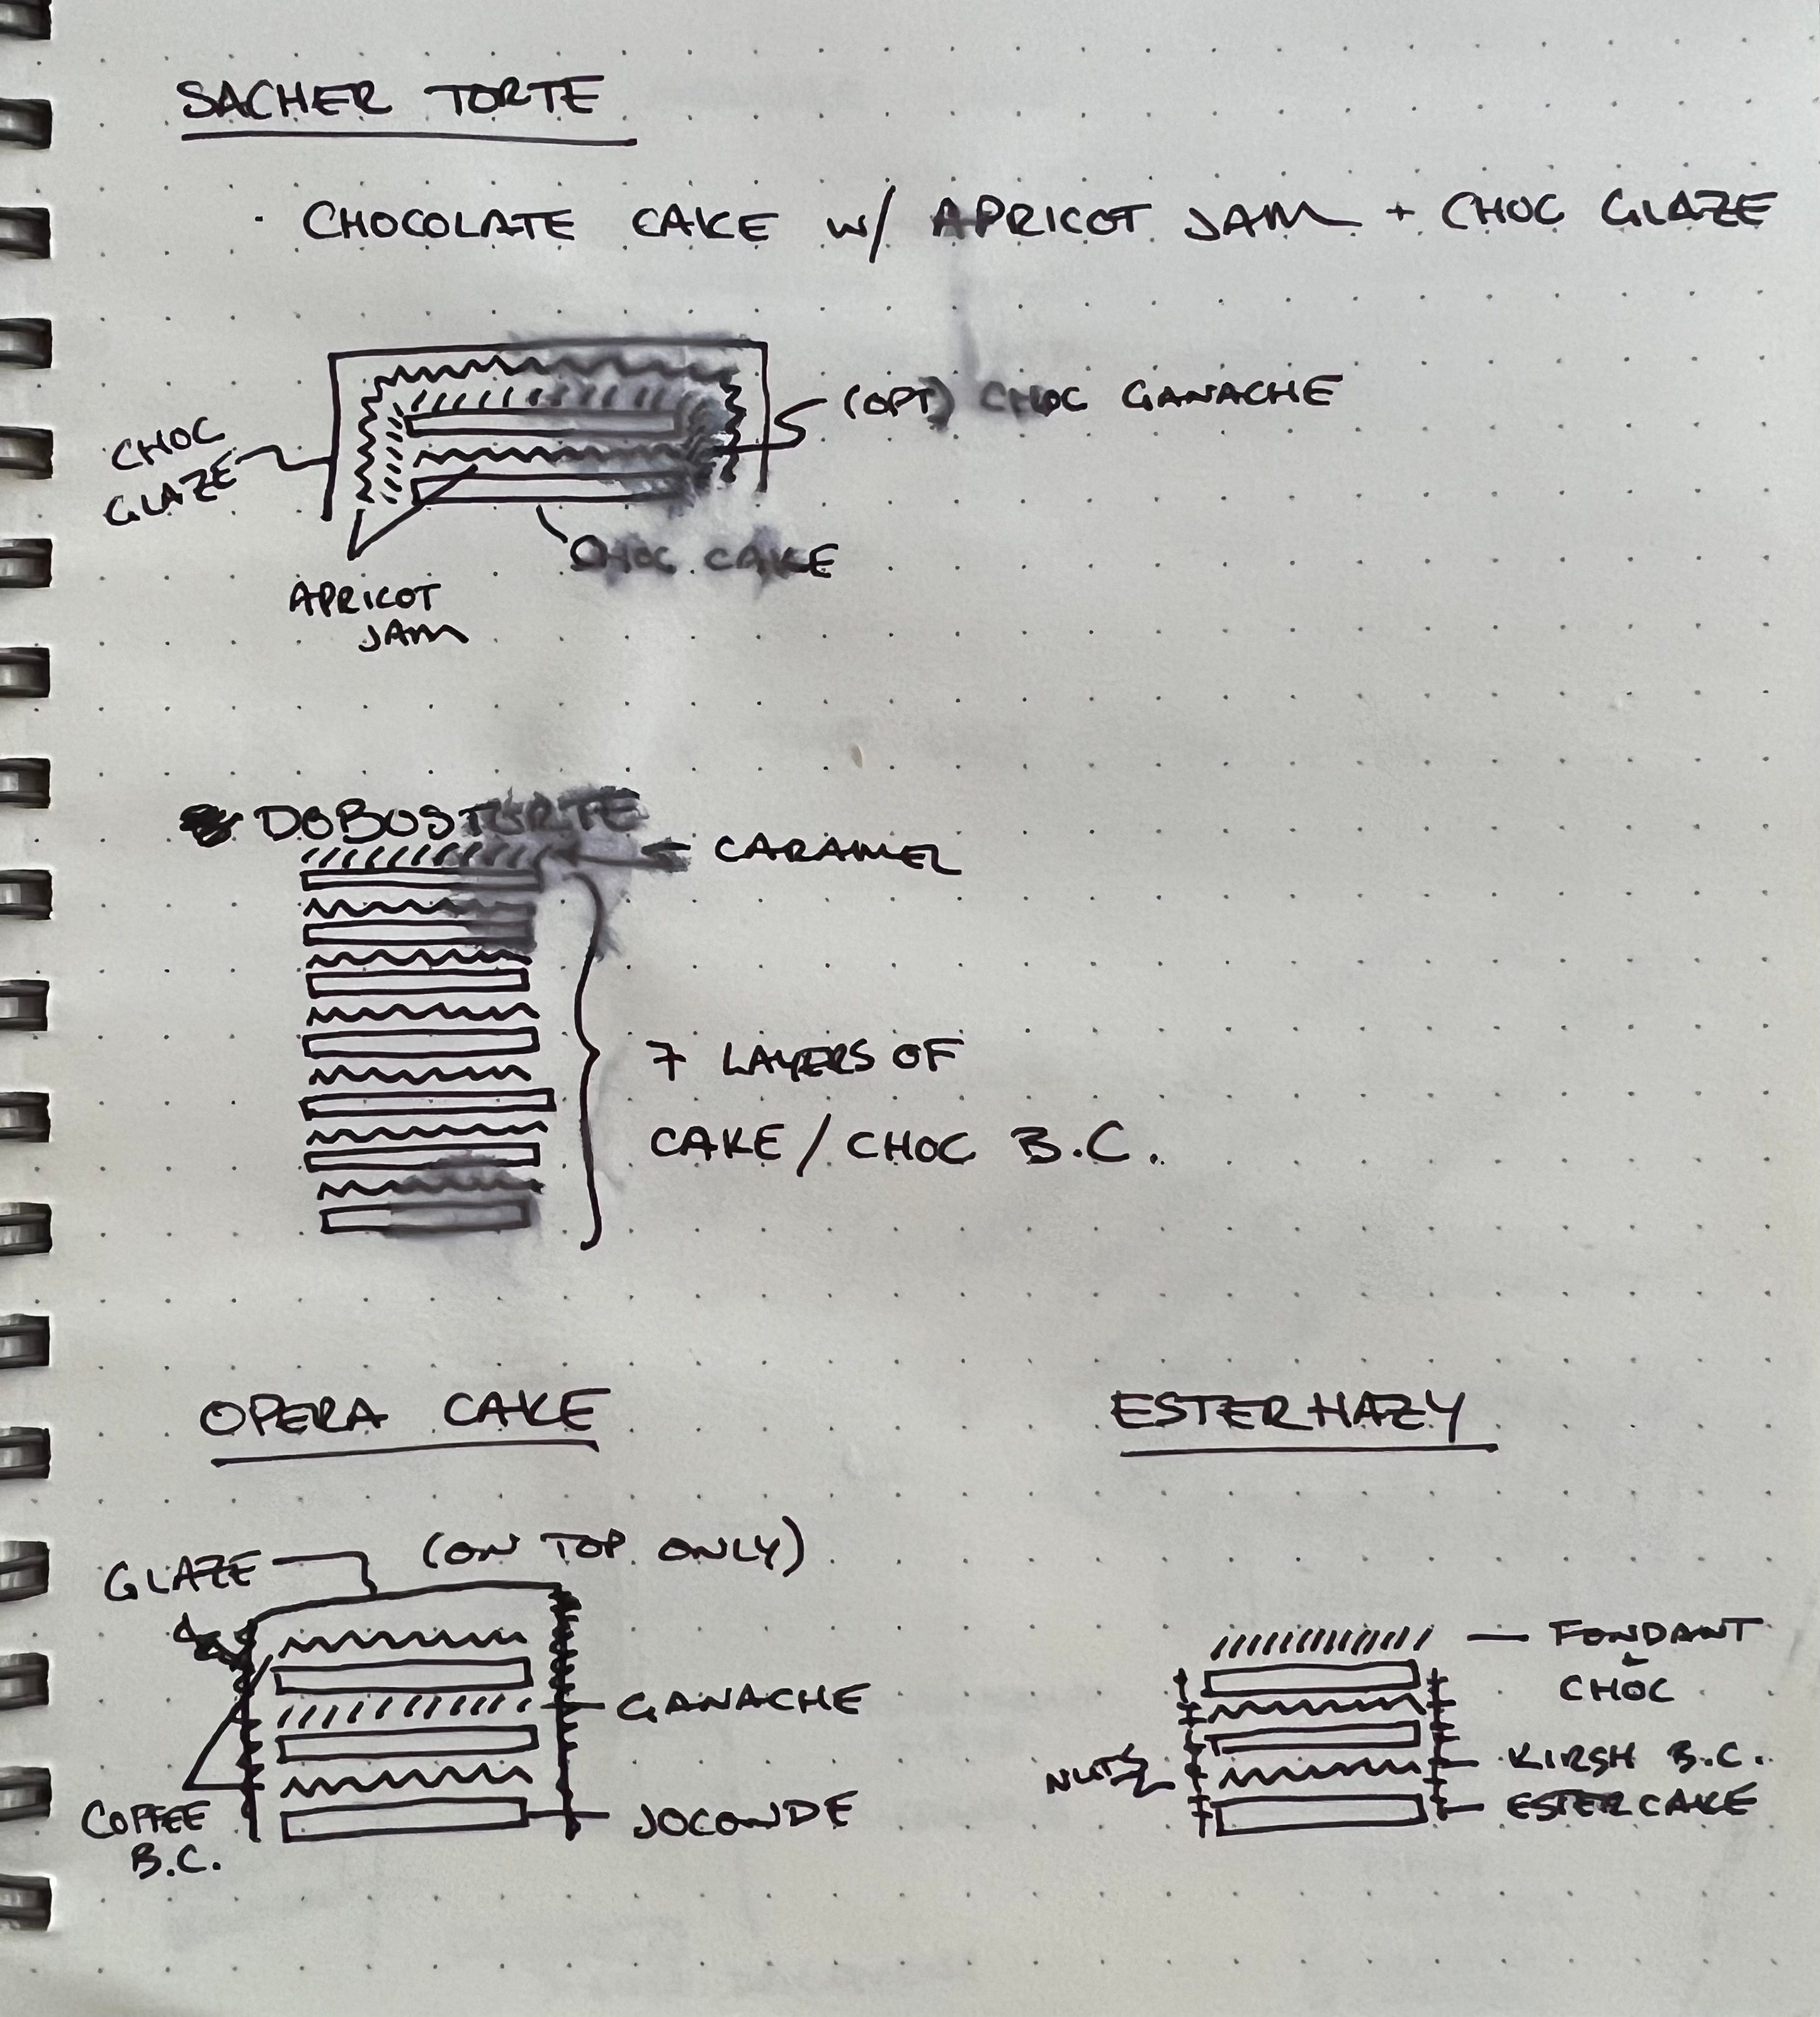 SACHER TORTE
· CHOCOLATE CAKE W/ APRICOT JAM + CHOC GLAZE
(OPT) CHOC GANACHE
CHOC
GLAZE
CHOC CAKE
APRICOT
JAM
DOBUSTORTE
CARAMEL
7 LAYERS OF
CAKE / CHOC B.C.
OPERA CAKE
GLAZE
(ON TOP ONLY)
GANACHE
COFFEE
B.C.
JOCONDE
ESTERHAZY
FONDANT
CHOC
NUTS
KIRSH B.C.
ESTERCAKE